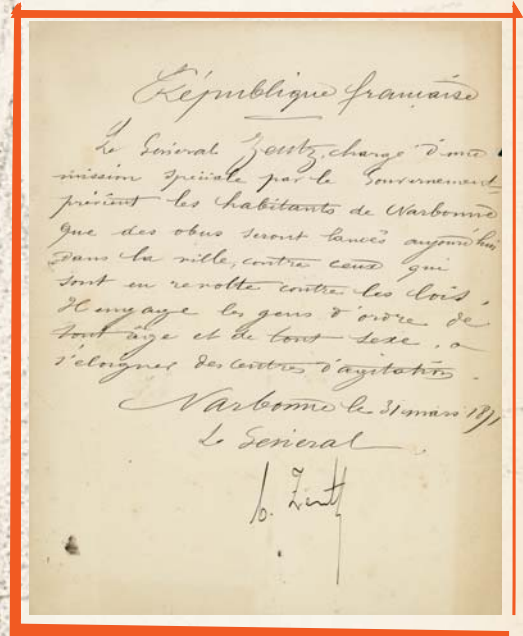 République française
Le Général Zentz, chargé d'une
mission spéciale par le Gouvernement
prévient les habitants de Narbonne
que des obus seront lancés aujourd'hui
dans la ville, contre ceux qui
sont en revolte contre les lois.
Il engage les gens d'ordre de
tout âge et de tout sexe, a
s'eloigner des centres d'agitation.
Narbonne le 31 mars 1871
Le General
C. Zentz